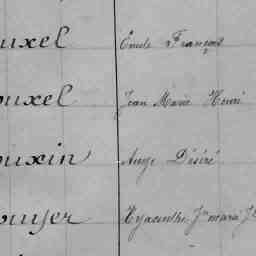 uxel Emile François
ouxel Jean Marie Henri
ouxin Ange Désiré
ouyer Hyacinthe Jn marie